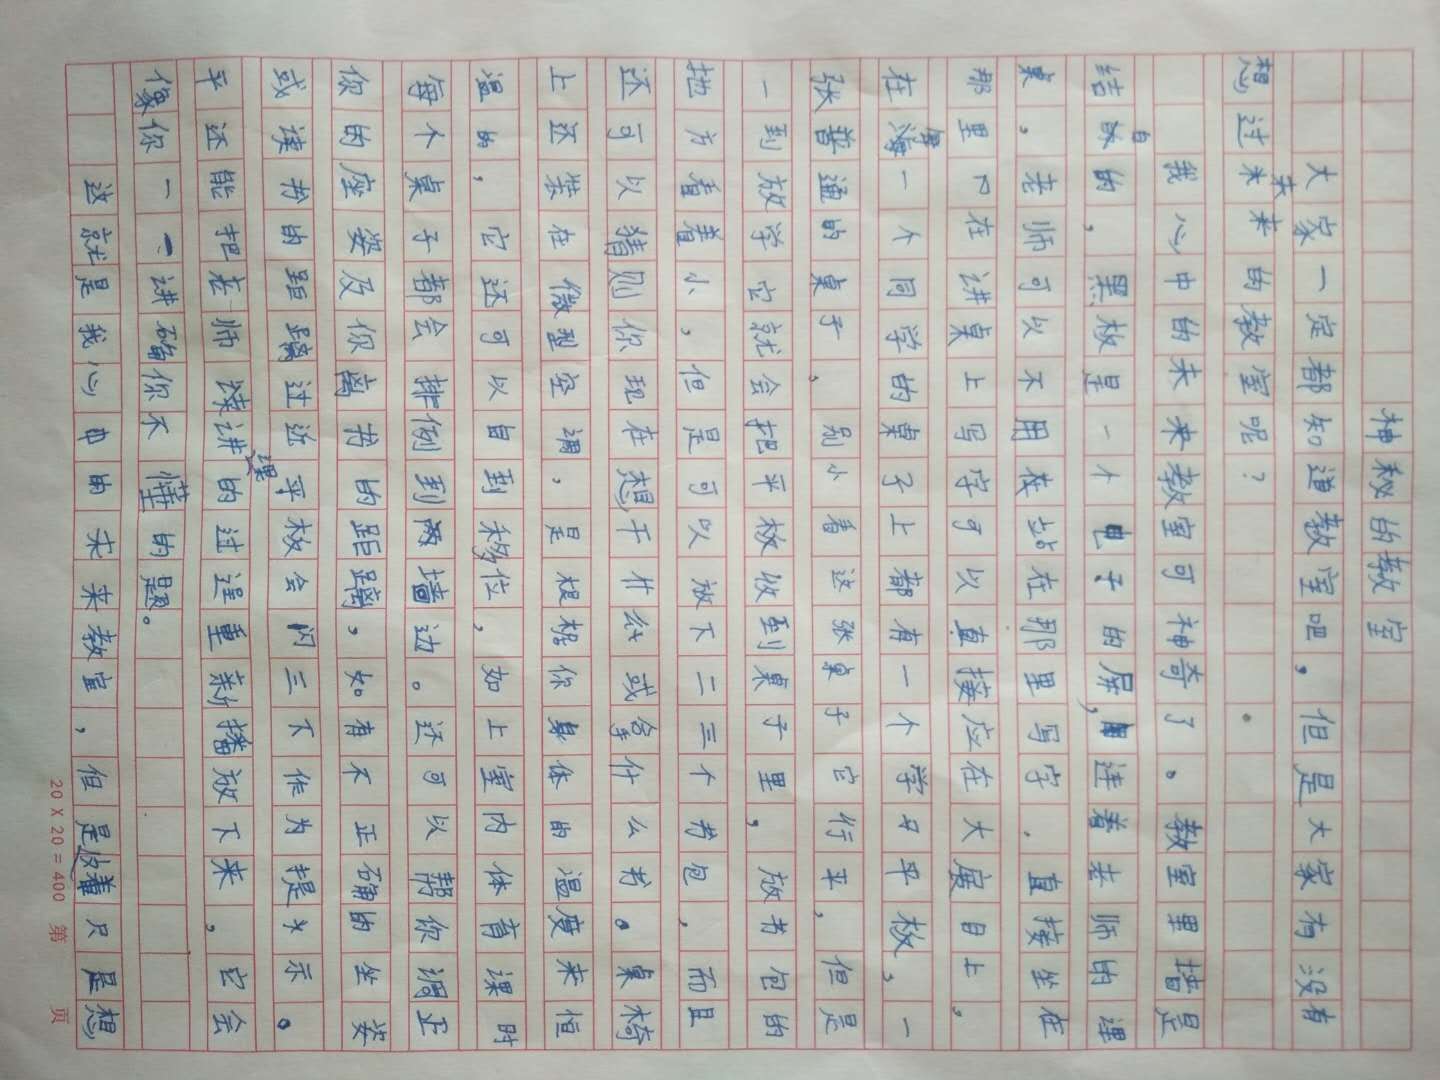 神秘的教室
大家一定都知道教室吧，但是大家有没有
想过未来的教室呢？
我心中的未来教室可神奇了。教室里墙是
结白的，黑板是一个电子的屏，连着老师的课
桌，老师可以不用在站在那里写字，直接坐在
那里在讲桌上写字可以直接应在大屏目上，
在每一个同学的桌子上都有一个学习平板，一
张普通的桌子，别小看这张桌子它行平，但是
一到放学它就会把平板收到桌子里，放书包的
地方看着小，但是可以放下二三个书包，而且
还可以猜测你现在想干什么或拿什么书。桌椅
上还装在微型空调，是根据你身体的温度来恒
温的，它还可以自到移位，如上室内体育课时
每个桌子都会排例到两墙边。还可以帮你调正
你的座姿及你离书的距离，如有不正确的坐姿
或读书的距离过近平板会闪三下作为提示。
平还能把老师讲课的过逞重新播放下来，它会
像你一一讲确你不懂的题。
这就是我心中的未来教室，但是只是想
20 X 20 = 400 第 页